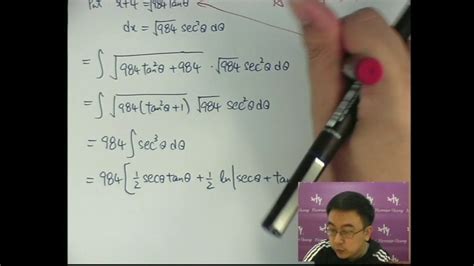 Put x+4 = √984 tanθ
dx = √984 sec²θ dθ
= ∫ √(984tan²θ + 984) · √984 sec²θ dθ
= ∫ √(984(tan²θ+1)) √984 sec²θ dθ
= 984 ∫ sec³θ dθ
= 984 [ ½ secθ tanθ + ½ ln|secθ + tan